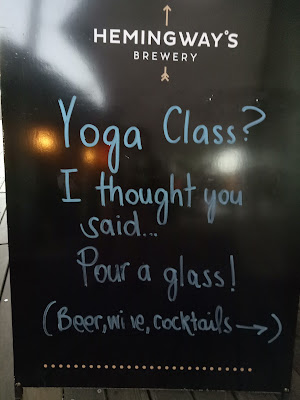 HEMINGWAY'S
BREWERY
Yoga Class?
I thought you
said...
Pour a glass!
(Beer, wine, cocktails →)